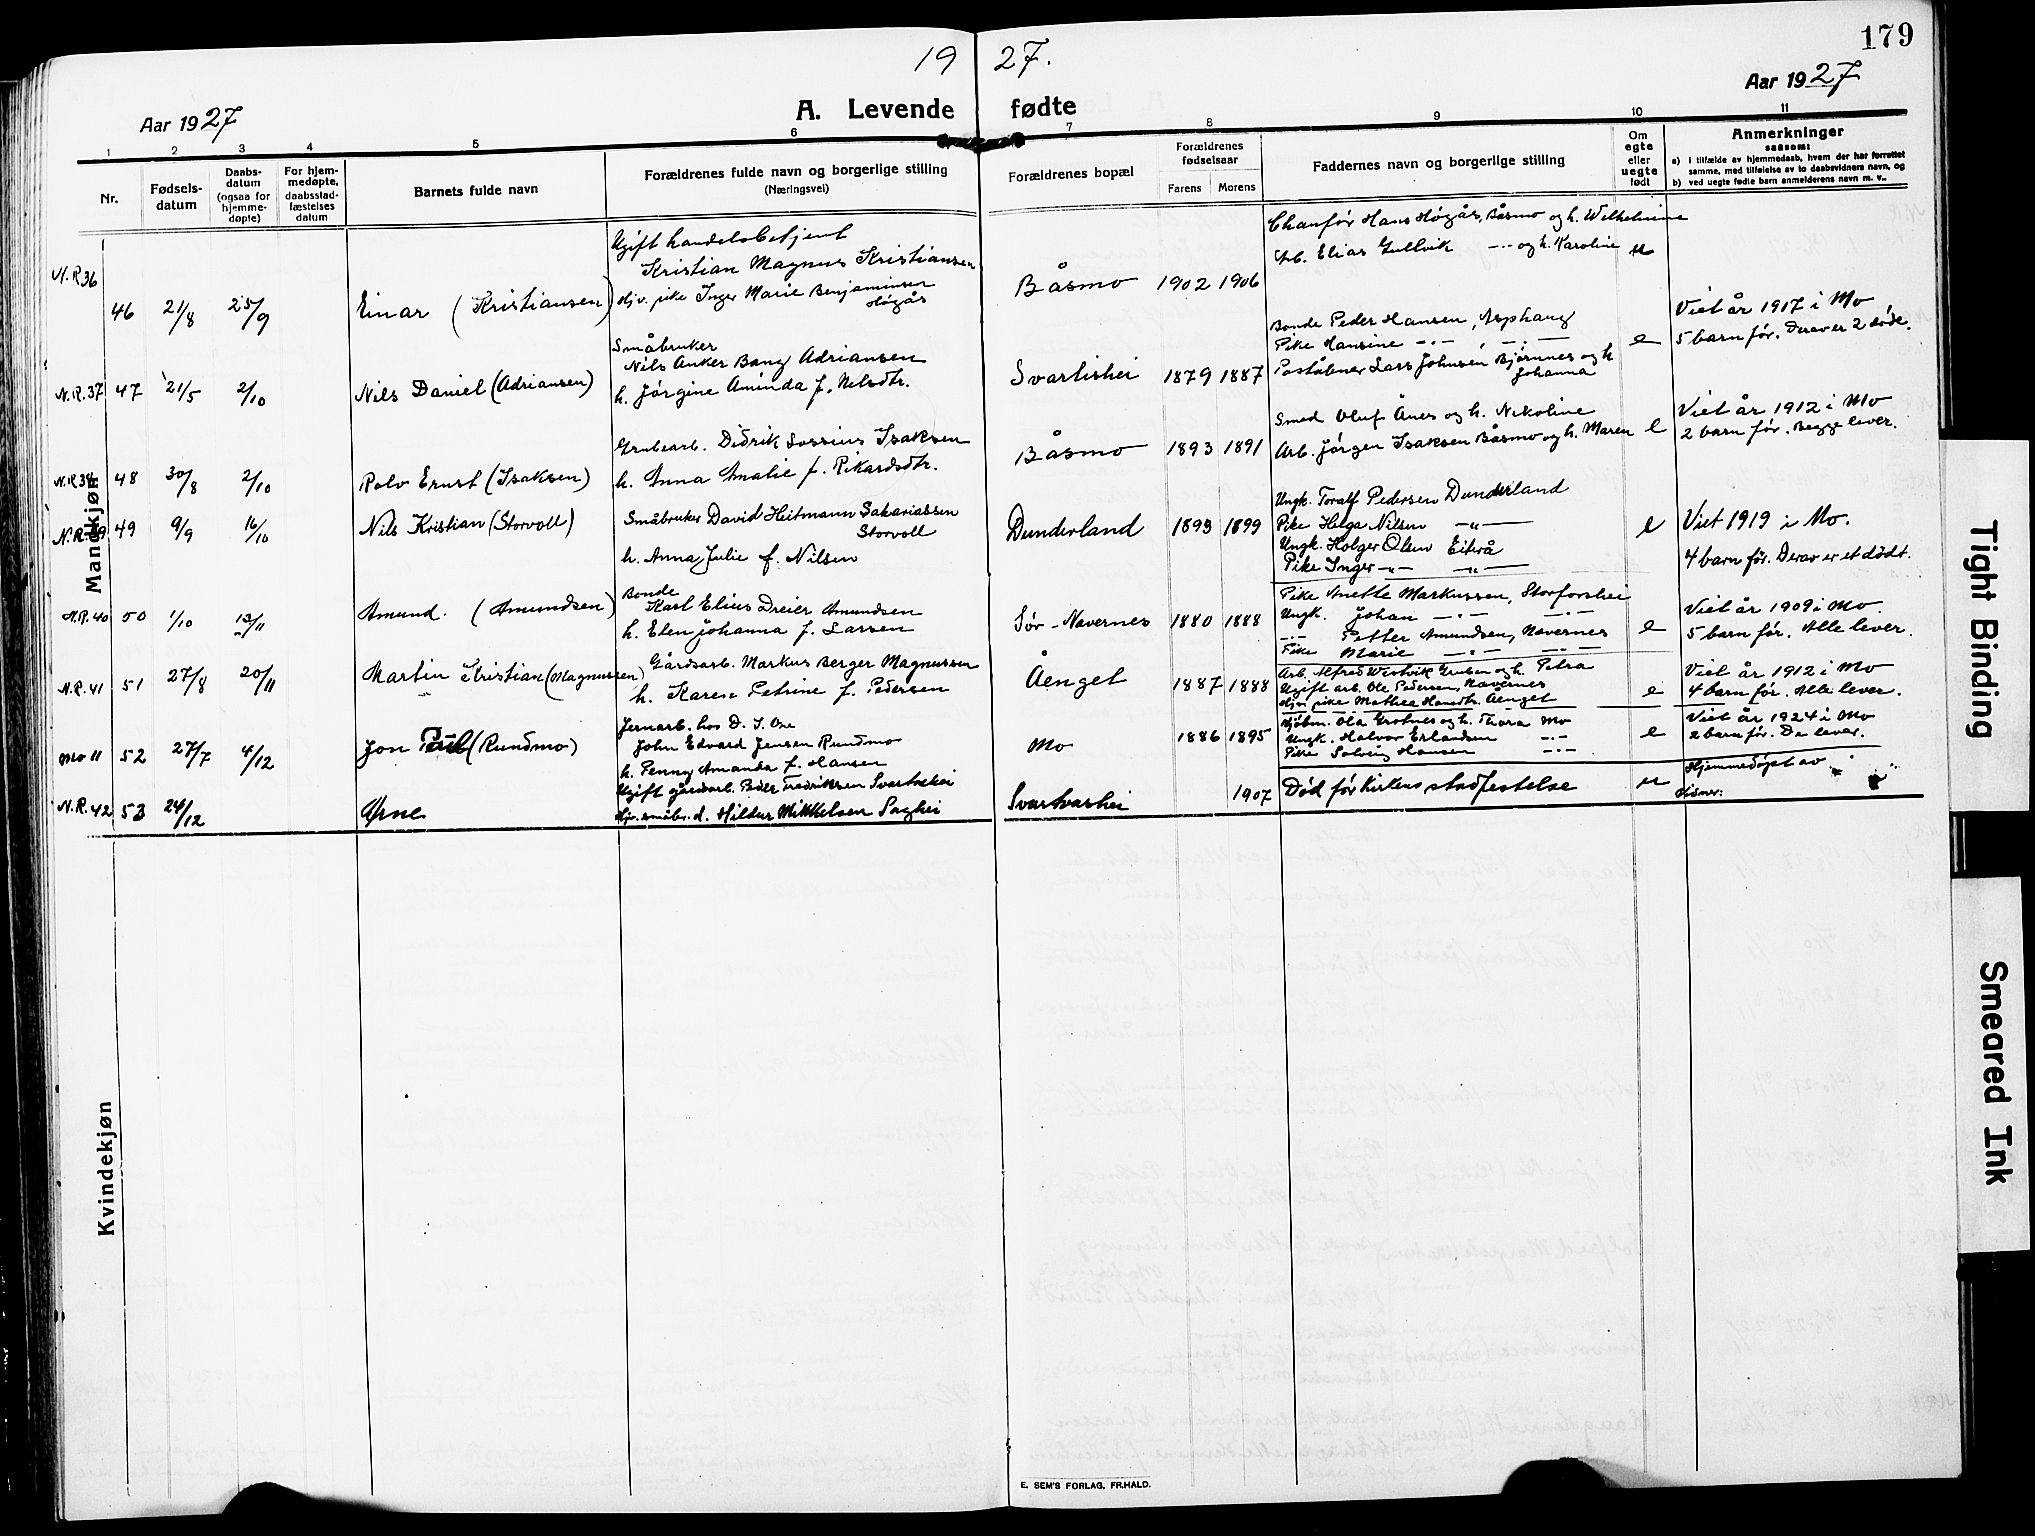 179
19 27.
Aar 1927
A. Levende fødte
Aar 1927
1 2 3 4 5 6 7 8 9 10 11
Nr.
Fødsels-
datum
Daabs-
datum
(ogsaa for
hjemme-
døpte)
For hjem-
medøpte,
daabsstad-
fæstelses
datum
Barnets fulde navn
Forældrenes fulde navn og borgerlige stilling
(Næringsvei)
Forældrenes bopæl
Forældrenes
fødselsaar
Farens Morens
Faddernes navn og borgerlige stilling
Om
egte
eller
uegte
født
Anmerkninger
saasom:
a) i tilfælde av hjemmedaab, hvem der har forrettet
samme, med tilføielse av to daabsvidners navn, og
b) ved uegte fødte barn anmelderens navn m. v..
Mandkjøn
N.R 36 46 21/8 25/9 Einar (Kristiansen)
Ugift handelsbetjent
Kristian Magnus Kristiansen
Hjv. pike Inger Marie Benjaminsen
Høgås
Båsmo 1902 1906
Chauför Hans Høgås, Båsmo og h. Wilhelmine
Arb. Elias Gullvik -"- og h. Karoline
u
N.R.37 47 21/5 2/10 Nils Daniel (Adriansen)
Småbruker
Nils Anker Bang Adriansen
h. Jørgine Aminda f. Nelsdtr.
Svartishei 1879 1887
Bonde Peder Hansen, Asphaug
Pike Hansine -"- , -"-
Poståbner Lars Johnsen Bjørnnes og h
Johanna
e
Viet år 1917 i Mo
5 barn før. Derav er 2 døde.
N.R.38 48 30/8 2/10 Rolv Ernst (Isaksen)
Grubearb. Didrik Sossius Isaksen
h. Anna Amalie f. Rikardsdtr.
Båsmo 1893 1891
Smed Oluf Ånes og h. Nikoline
Arb. Jørgen Isaksen Båsmo og h. Maren
e
Viet år 1912 i Mo
2 barn før. Begge lever.
N.R.39 49 9/9 16/10 Nils Kristian (Storvoll)
Småbruker David Heitmann Sakariassen
Storvoll
h. Anna Julie f. Nilsen
Dunderland 1893 1899
Ungk. Toralf Pedersen Dunderland
Pike Helga Nilsen -"-
Ungk. Holger Olsen Eiterå
Pike Inger -"- -"-
e
Viet 1919 i Mo.
4 barn før. Derav er et dødt.
N.R.40 50 1/10 13/11 Amund. (Amundsen)
Bonde
Karl Elius Dreier Amundsen
h. Elen Johanna f. Larsen
Sør-Nævernes 1880 1888
Pike Anette Markussen, Storforshei
Ungk. Johan -"- -"-
-"- Petter Amundsen, Nævernes
Pike Marie -"- -"-
e
Viet år 1909 i Mo.
5 barn før. Alle lever.
N.R.41 51 27/8 20/11 Martin Kristian (Magnussen)
Gårdsarb. Markus Berger Magnussen
h. Karen Petrine f. Pedersen
Åenget 1887 1888
Arb. Alfred Westvik Gruben og h. Petra
Ugift arb. Ole Pedersen, Nævernes
Hjv. pike Mathea Hansdtr. Åenget
e
Viet år 1912 i Mo
4 barn før. Alle lever.
Mo 11 52 27/7 4/12 Jon (Rundmo)
Jernarb. hos D. I. Ore
John Edvard Jensen Rundmo
h. Penny Amanda f. Hansen
Mo 1886 1895
Kjøbm. Ola Grotnes og h. Thora Mo
Ungk. Halvor Erlandsen -"-
Pike Solveig Hansen -"-
e
Viet år 1924 i Mo
2 barn før. De lever.
N.R.42 53 24/12 Arne
Ugift gårdsarb. Peder Fredriksen Svartvashei
Hjv. småbr. d. Hildur Mikkelsen Saghei
Svartvashei 1907
Død før kirkens stadfestelse
u
Hjemmedøpt av
Kvindekjøn
E. SEM'S FORLAG, FR.HALD.
Tight Binding
Smeared Ink